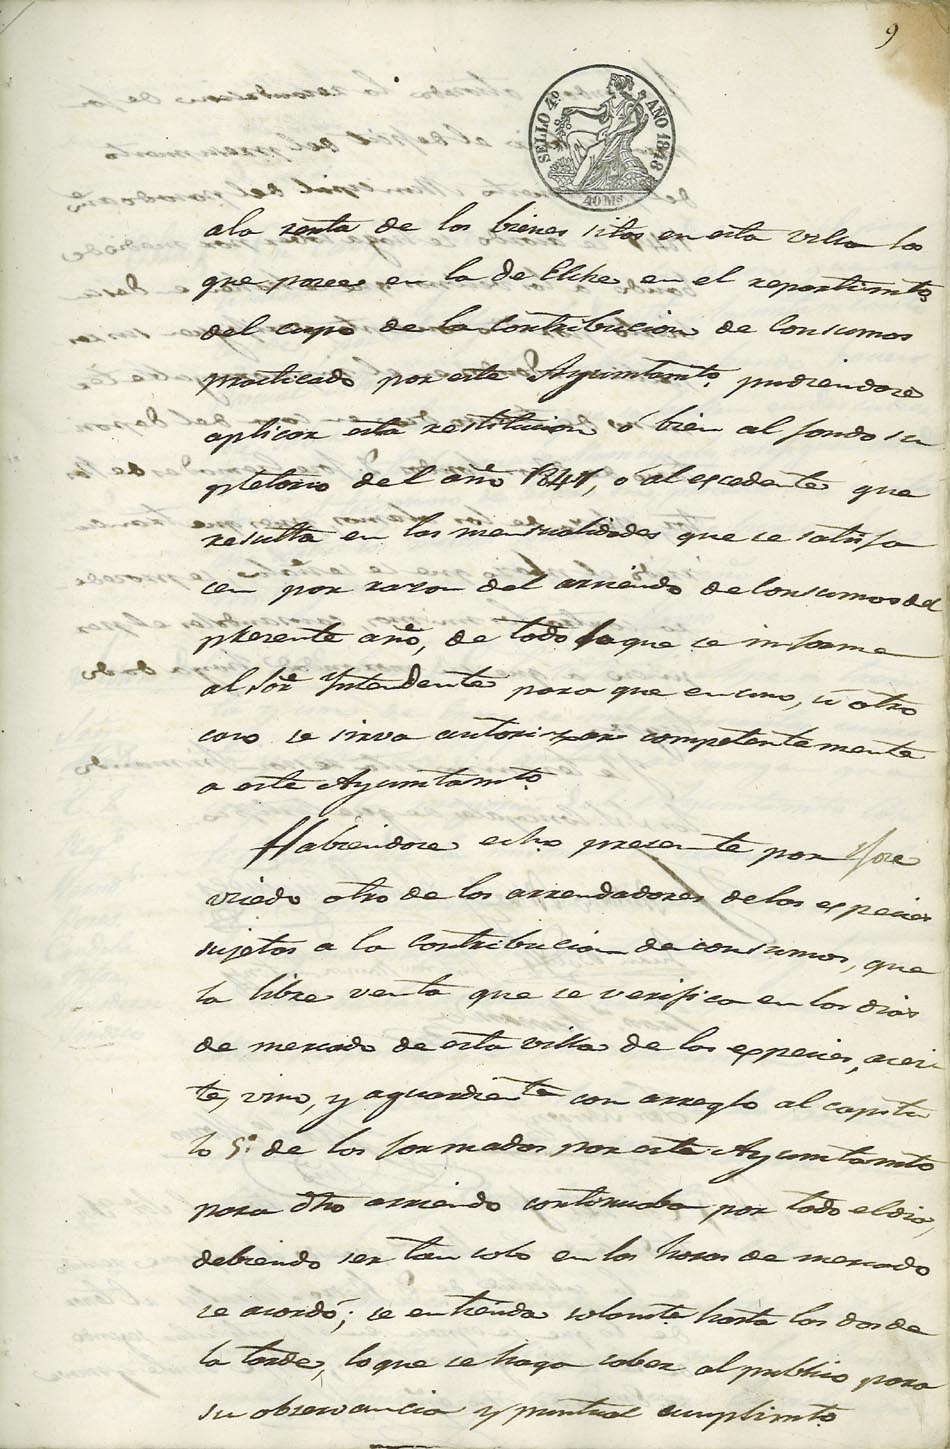 9
SELLO 4º AÑO 1848
40 Ms
a la renta de los bienes sitos en esta villa los
que posee en la de Elche en el repartimto
del cupo de la Contribucion de Consumos
practicado por este Ayuntamto. pudiendose
aplicar esta restitucion ó bien al fondo su
pletorio del año 1847, ó al escedente que
resulta en las mensualidades que se satisfa
cen por razon del arriendo de Consumos del
presente año, de todo lo que se informe
al Sor Yntendente para que en uno, ú otro
caso se sirva autorizar competentemente
a este Ayuntamto.
Habiendose echo presente por Jose
otro de los arrendadores de las especies
sujetas a la Contribucion de consumos, que
la libre venta que se verifica en los dias
de mercado de esta villa de las especies, acei
te, vino, y aguardiente con arreglo al capitu
lo 5º. de los formados por este Ayuntamto
para dho arriendo continuaba por todo el dia,
debiendo ser tan solo en las horas de mercado
se acordó; se entienda solamte. hasta las dos de
la tarde, lo que se haga saber al publico para
su observancia y puntual cumplimto.